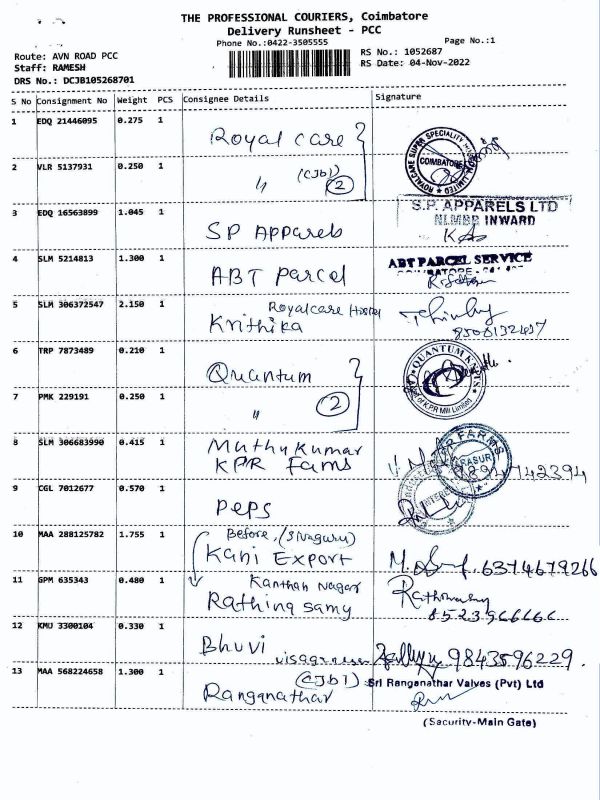 THE PROFESSIONAL COURIERS, Coimbatore
Delivery Runsheet - PCC
Phone No.:0422-3505555
Page No.:1
Route: AVN ROAD PCC
RS No.: 1052687
Staff: RAMESH
RS Date: 04-Nov-2022
DRS No.: DCJB105268701
S No Consignment No Weight PCS Consignee Details Signature
1 EDQ 21446095 0.275 1 Royal care
ROYALCARE SUPER SPECIALITY LIMITED
COIMBATORE
2 VLR 5137931 0.250 1 " (CJB1) 2
3 EDQ 16563899 1.045 1 SP Apparels
S.P. APPARELS LTD
INWARD
4 SLM 5214813 1.300 1 ABT Parcel
ABT PARCEL SERVICE
5 SLM 306372547 2.150 1 Royalcare
Krithika
6 TRP 7873489 0.210 1 Quantum
QUANTUM KNITS
of KPR Mill Limited
7 PMK 229191 0.250 1 " 2
8 SLM 306683990 0.415 1 Muthu Kumar
KPR Fams
FARMS
9 CGL 7012677 0.570 1 Peps
10 MAA 288125782 1.755 1 Before, (Sivaguru)
Kani Export
6374679266
11 GPM 635343 0.480 1 Kanthan Nagar
Rathina samy
8523966666
12 KMU 3300104 0.330 1 Bhuvi
9843596229.
13 MAA 568224658 1.300 1 (CJB1)
Ranganathar
Sri Ranganathar Valves (Pvt) Ltd
(Security-Main Gate)